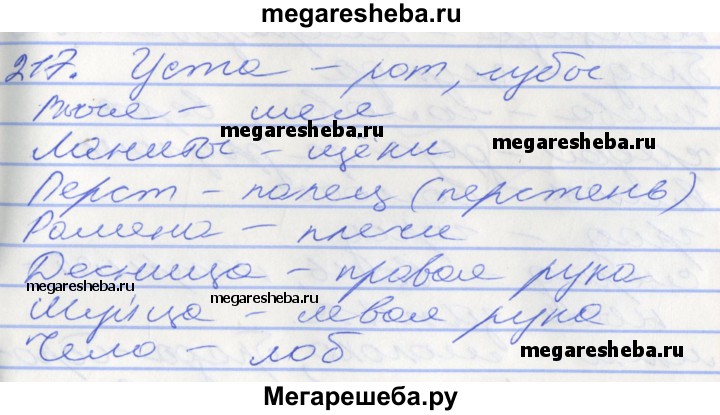 megaresheba.ru
217. Уста – рот, губы
Выя – шея
megaresheba.ru
Ланиты – щёки
megaresheba.ru
Перст – палец (перстень)
Рамена – плечи
Десница – правая рука
megaresheba.ru
megaresheba.ru
Шуйца – левая рука
Чело – лоб
megaresheba.ru
Мегарешеба.ру